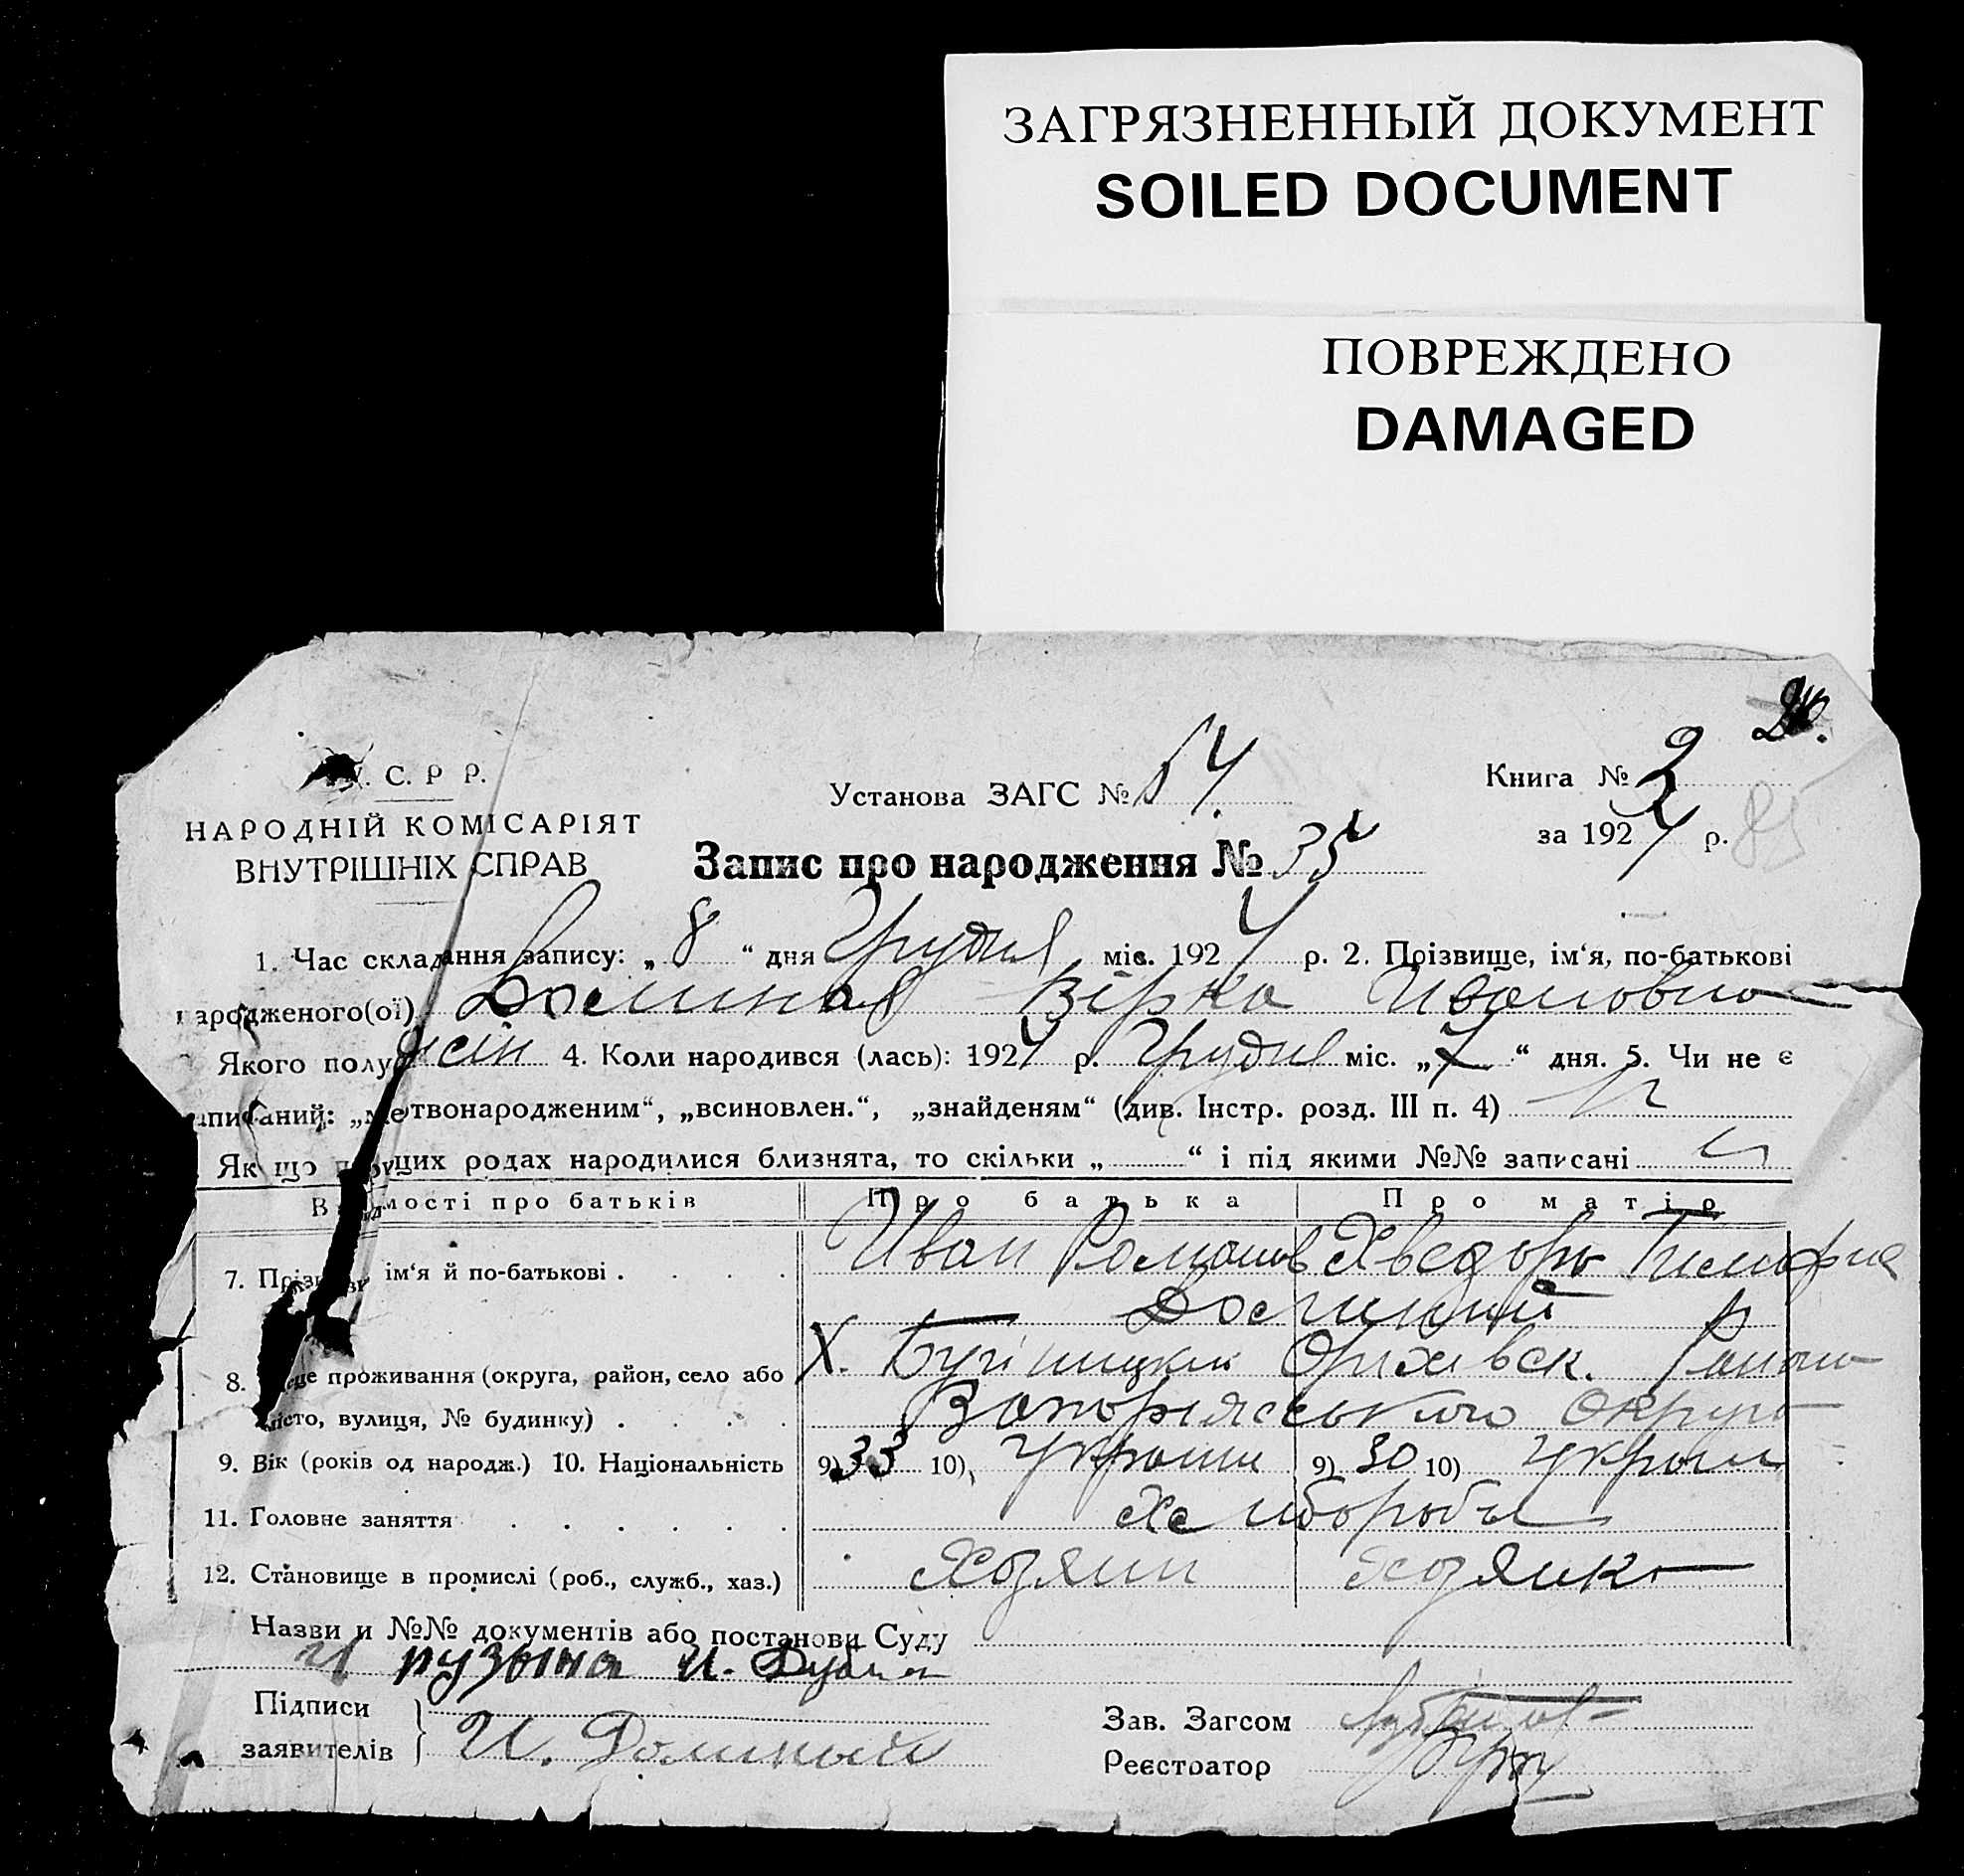 ЗАГРЯЗНЕННЫЙ ДОКУМЕНТ
SOILED DOCUMENT
ПОВРЕЖДЕНО
DAMAGED
У. С. Р Р.
Установа ЗАГС № 54.
Книга № 2
НАРОДНІЙ КОМІСАРІЯТ
за 1924 р. 85
ВНУТРІШНІХ СПРАВ
Запис про народження № 35
1. Час складання запису: „ 8 “ дня Грудня міс. 1924 р. 2. Прізвище, ім‘я, по-батькові
народженого(ої) Долиная Вірка Ивановно
Якого полу 4. Коли народився (лась): 1924 р. Грудня міс. „ 7 “ дня. 5. Чи не є
записаний: „мертвонародженим“, „всиновлен.“, „знайденям“ (див. Інстр. розд. III п. 4)
Як що при цих родах народилися близнята, то скільки „ “ і під якими №№ записані
Відомості про батьків Про батька Про матір
7. Прізвище, ім‘я й по-батькові . . . . Иван Романов Хведора Тимофие
Долиний
8. Місце проживання (округа, район, село або Х. Оріхівск. Району
місто, вулиця, № будинку) . . . . Запоріжського Округа
9. Вік (років од народж.) 10. Національність 9) 33 10) Україн 9) 30 10) Україн
11. Головне заняття . . . . . . Хлібороби
12. Становище в промислі (роб., служб., хаз.) Хозяин Хозяика
Назви и №№ документів або постанови Суду
И.
Підписи
заявителів И. Долиный
Зав. Загсом
Реєстратор